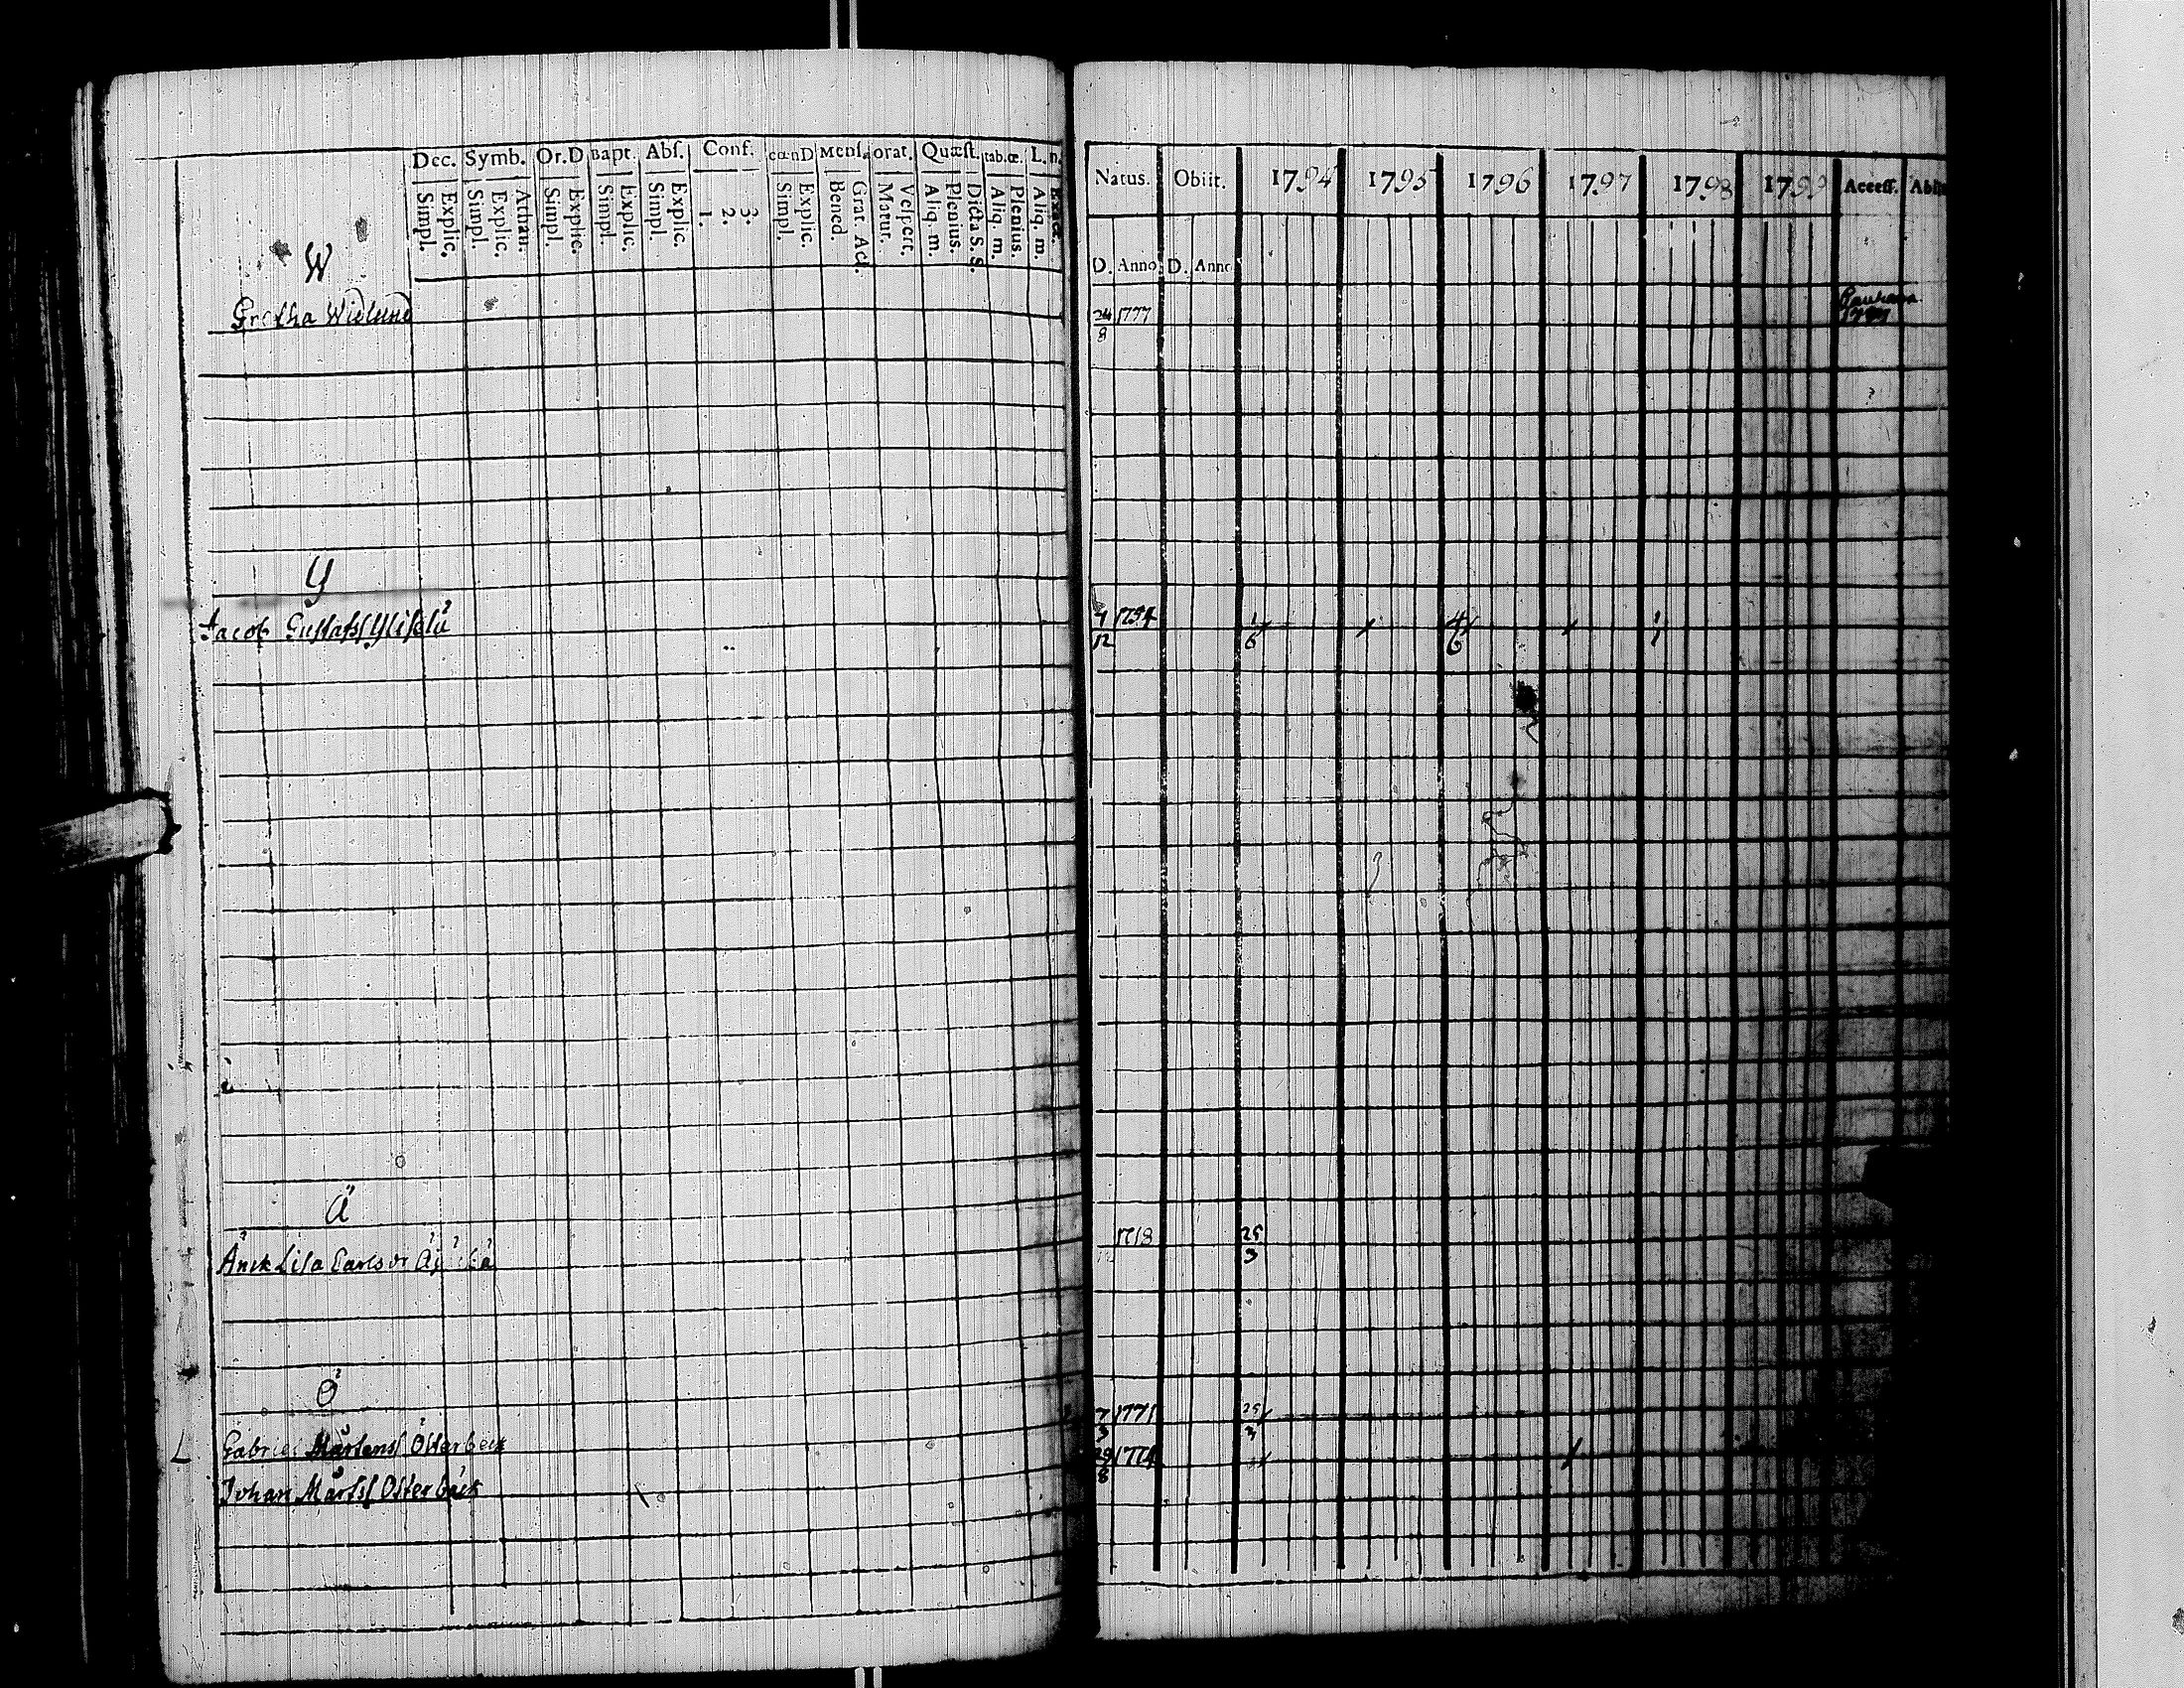 Dec. Symb. Or.D Bapt. Abs. Conf. cœnD Mens. orat. Quæst. tab.œ. L. n.
Simpl. Explic. Simpl. Explic. Athan. Simpl. Explic. Simpl. Explic. Simpl. Explic. 1. 2. 3. Simpl. Explic. Bened. Grat. Act. Matut. Vespert. Aliq. m. Plenius. Dicta S. S. Aliq. m. Plenius. Aliq. m. Exact.
W
Gretha Widlund
Y
Jacob Gustafss
Ä
Lisa Carlsdr
Ö
L Gabriel Mårtenss Österbeck
Johan Mårtss Österbäck
Natus. Obiit. 1794 1795 1796 1797 1798 1799 Access. Abiit
D. Anno D. Anno
24/8 1777
4/12 1754 1/6 4/6
1718 25/3
7/3 1771 25/3
29/8 1774